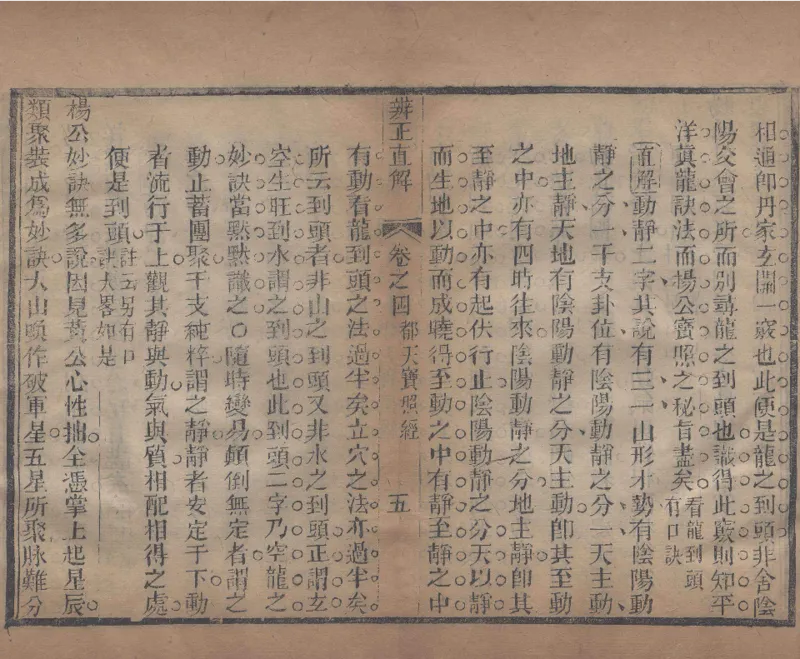 相通即丹家玄關一竅也此便是龍之到頭非舍陰
陽交會之所而別尋龍之到頭也識得此竅則知平
洋眞龍訣法而楊公寶照之秘旨盡矣看龍到頭有口訣
直解動靜二字其說有三一山形水勢有陰陽動
靜之分一干支卦位有陰陽動靜之分一天主動
地主靜天地有陰陽動靜之分天主動卽其至動
之中亦有四時往來陰陽動靜之分地主靜卽其
至靜之中亦有起伏行止陰陽動靜之分天以靜
而生地以動而成曉得至動之中有靜至靜之中
辨正直解 卷之四 都天寶照經 五
有動看龍到頭之法過半矣立穴之法亦過半矣
所云到頭者非山之到頭又非水之到頭正謂玄
空生旺到水謂之到頭也此到頭二字乃空龍之
妙訣當黙黙識之○隨時變易顛倒無定者謂之
動止蓄團聚干支純粹謂之靜靜者安定于下動
者流行于上觀其靜與動氣與質相配相得之處
便是到頭註云另有口訣大畧如是
楊公妙訣無多說因見黃公心性拙全憑掌上起星辰
類聚裝成爲妙訣大山喚作破軍星五星所聚脉難分